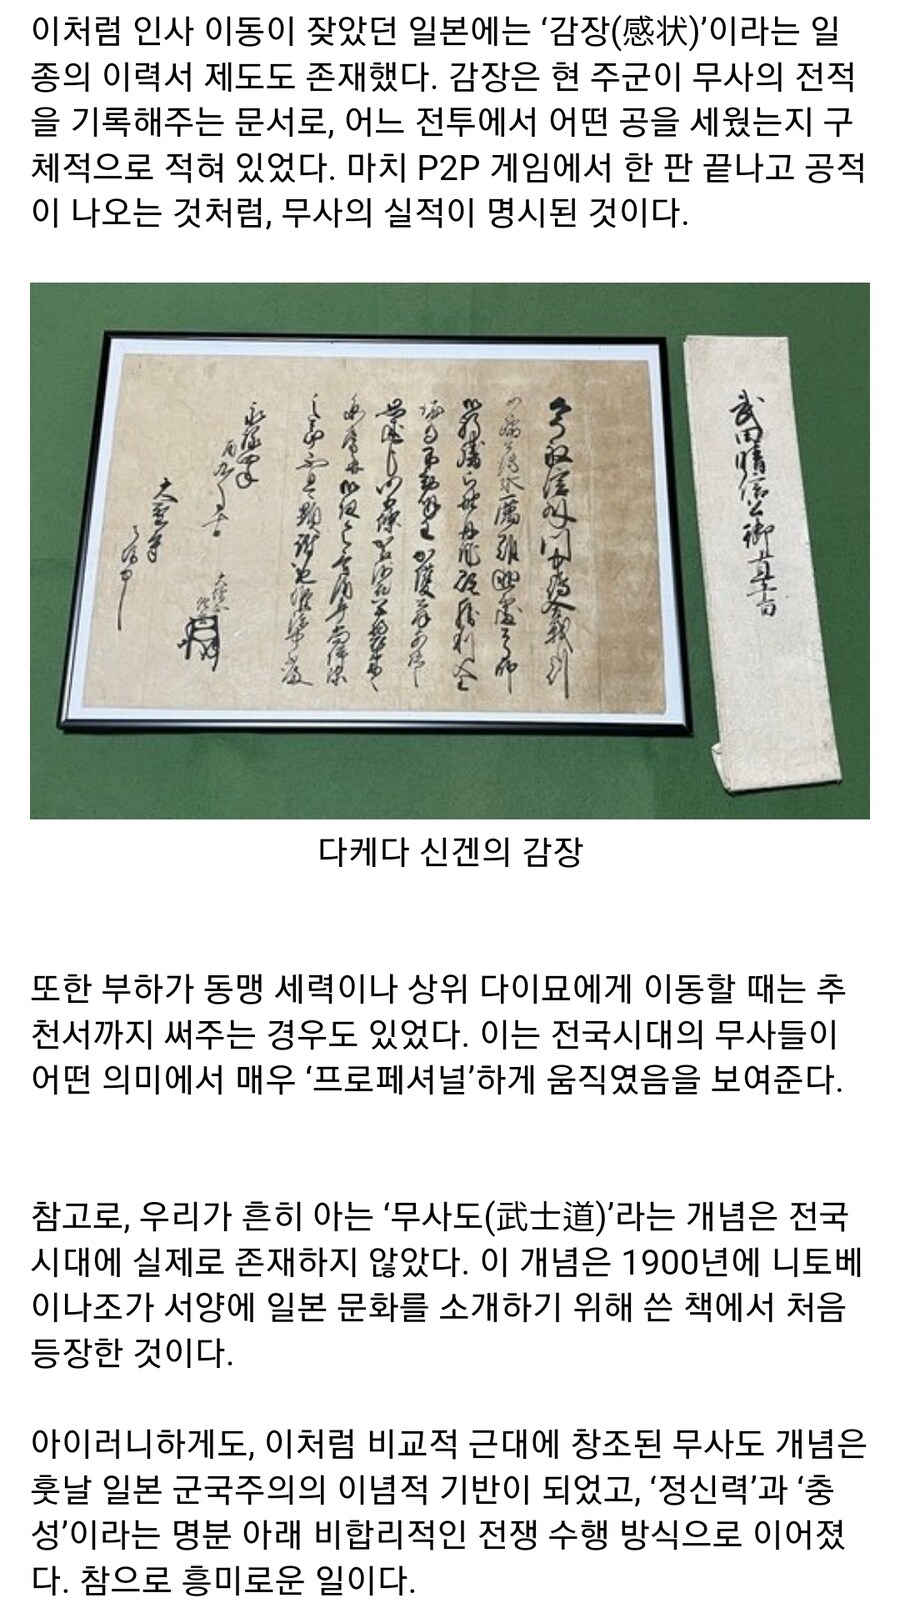 이처럼 인사 이동이 잦았던 일본에는 ‘감장(感状)’이라는 일
종의 이력서 제도도 존재했다. 감장은 현 주군이 무사의 전적
을 기록해주는 문서로, 어느 전투에서 어떤 공을 세웠는지 구
체적으로 적혀 있었다. 마치 P2P 게임에서 한 판 끝나고 공적
이 나오는 것처럼, 무사의 실적이 명시된 것이다.
武田晴信公御直書
다케다 신겐의 감장
또한 부하가 동맹 세력이나 상위 다이묘에게 이동할 때는 추
천서까지 써주는 경우도 있었다. 이는 전국시대의 무사들이
어떤 의미에서 매우 ‘프로페셔널’하게 움직였음을 보여준다.
참고로, 우리가 흔히 아는 ‘무사도(武士道)’라는 개념은 전국
시대에 실제로 존재하지 않았다. 이 개념은 1900년에 니토베
이나조가 서양에 일본 문화를 소개하기 위해 쓴 책에서 처음
등장한 것이다.
아이러니하게도, 이처럼 비교적 근대에 창조된 무사도 개념은
훗날 일본 군국주의의 이념적 기반이 되었고, ‘정신력’과 ‘충
성’이라는 명분 아래 비합리적인 전쟁 수행 방식으로 이어졌
다. 참으로 흥미로운 일이다.